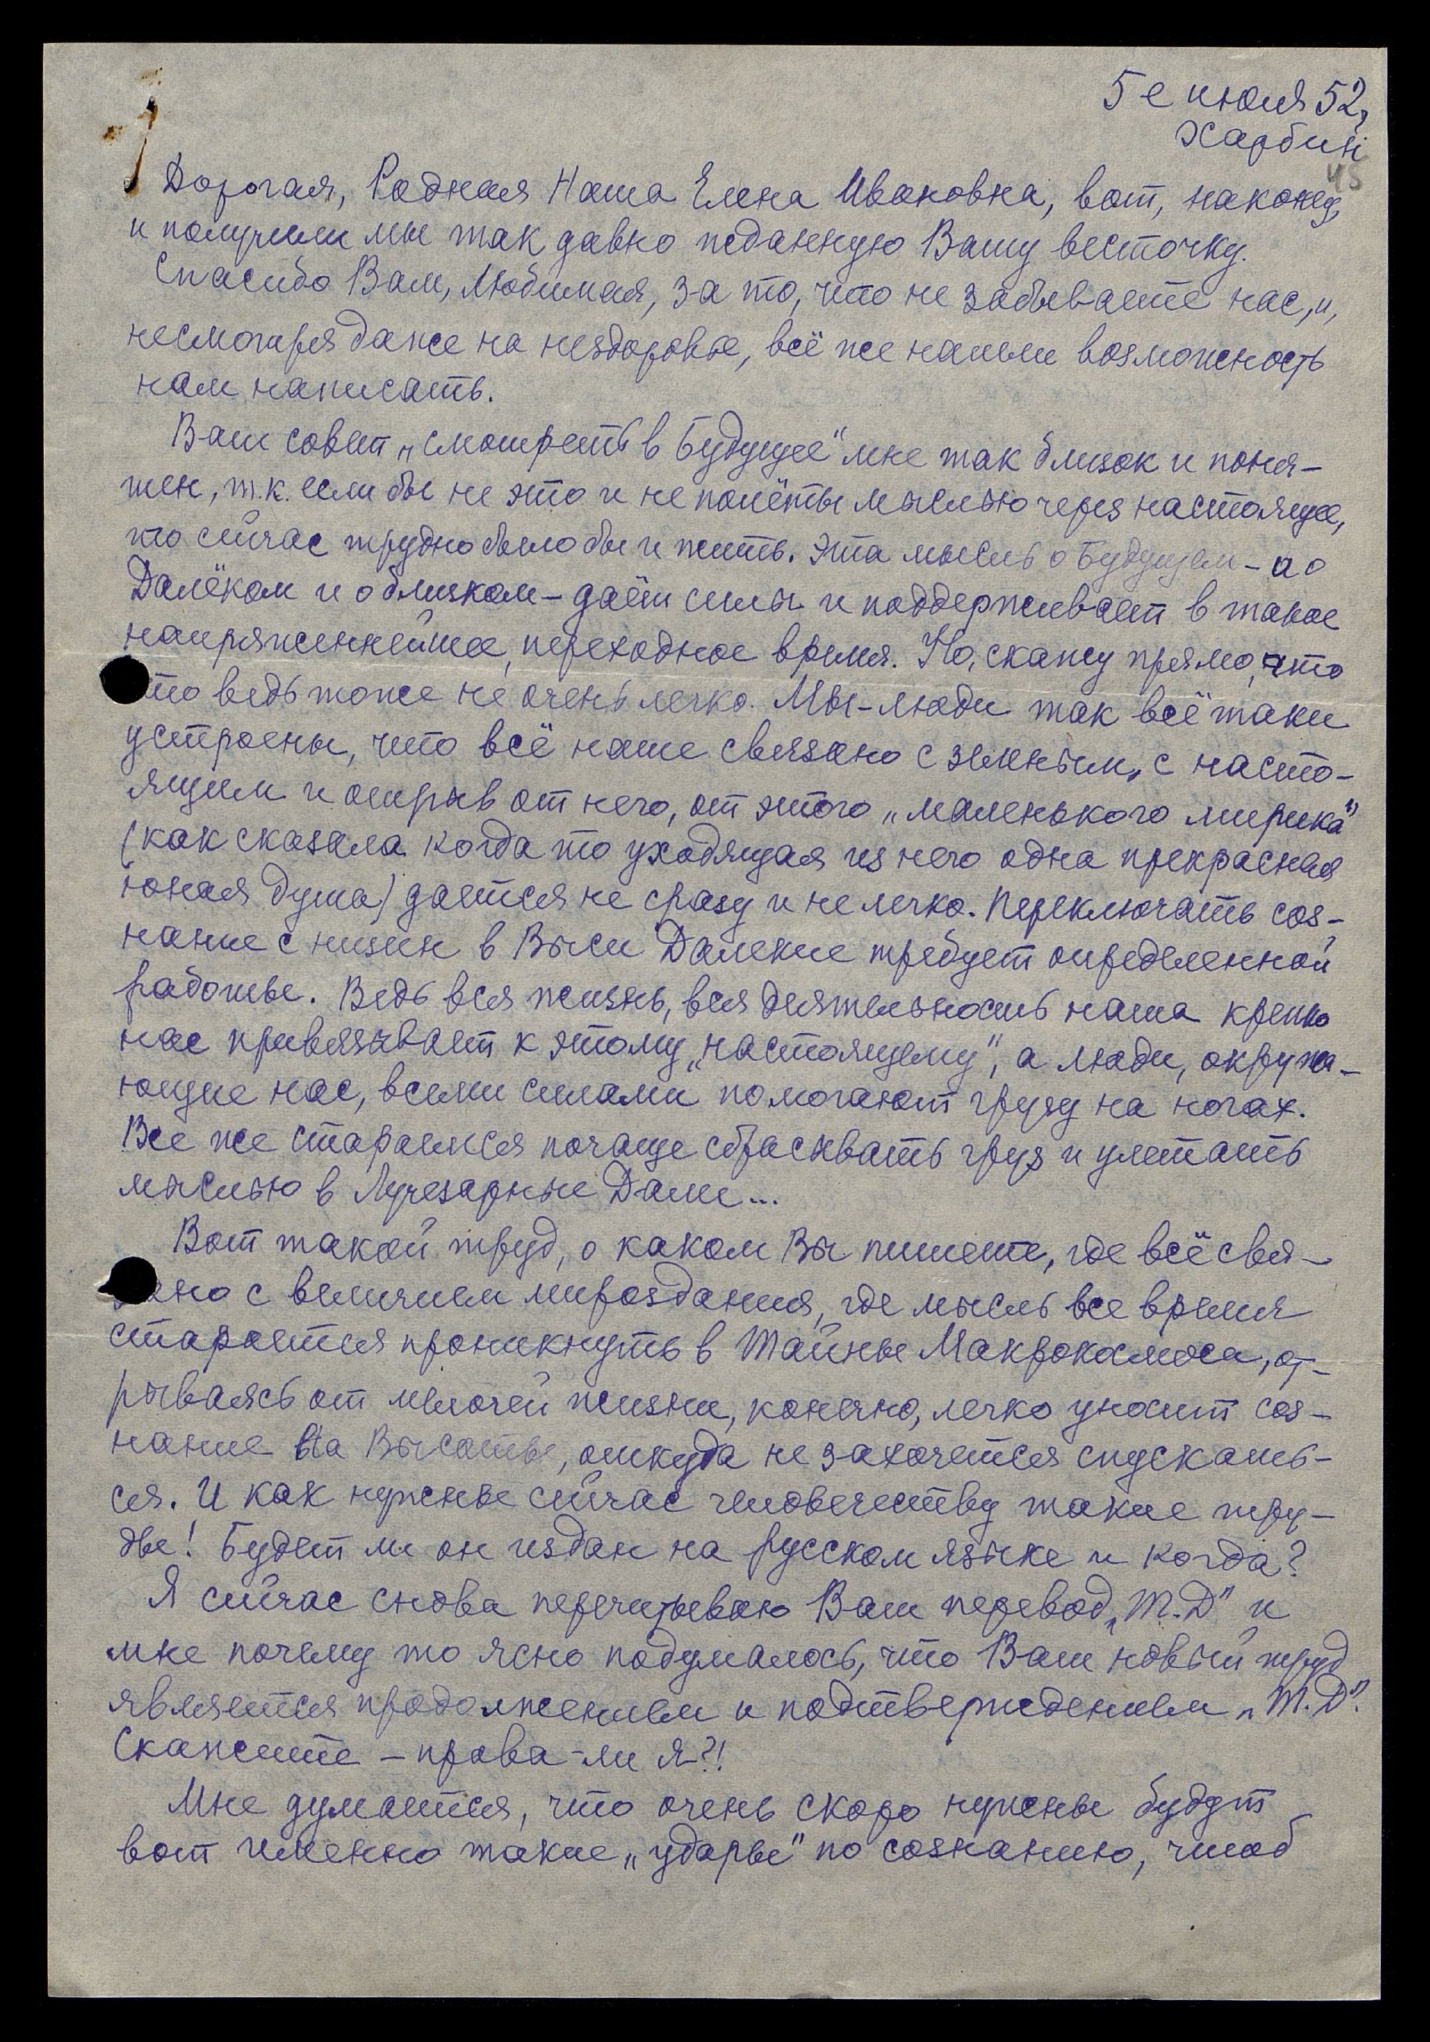 5е июля 52,
Харбин
45
Дорогая, Родная Наша Елена Ивановна, вот, наконец,
и получили мы так давно жданную Вашу весточку.
Спасибо Вам, Любимая, за то, что не забываете нас, и,
несмотря даже на нездоровье, всё же нашли возможность
нам написать.
Ваш совет „смотреть в Будущее" мне так близок и поня-
тен, т.к. если бы не это и не полёты мыслью через настоящее,
то сейчас трудно было бы и жить. Эта мысль о Будущем – и о
Далёком и о близком – даёт силы и поддерживает в такое
напряженнейшее, переходное время. Но, скажу прямо, что
это ведь тоже не очень легко. Мы – люди так всё таки
устроены, что всё наше связано с земным, с насто-
ящим и отрыв от него, от этого „маленького мирика"
(как сказала когда то уходящая из него одна прекрасная
юная душа) дается не сразу и не легко. Переключать соз-
нание с низин в Выси Далекие требует определенной
работы. Ведь вся жизнь, вся деятельность наша крепко
нас привязывает к этому „настоящему", а люди, окружа-
ющие нас, всеми силами помогают грузу на ногах.
Все же стараемся почаще сбрасывать груз и улетать
мыслью в Лучезарные Дали...
Вот такой труд, о каком Вы пишете, где всё свя-
зано с величием мироздания, где мысль все время
старается проникнуть в Тайны Макрокосмоса, от-
рываясь от мелочей жизни, конечно, легко уносит соз-
нание на Высоты, откуда не захочется спускать-
ся. И как нужны сейчас человечеству такие тру-
ды! Будет ли он издан на русском языке и когда?
Я сейчас снова перечитываю Ваш перевод „Т.Д" и
мне почему то ясно подумалось, что Ваш новый труд
является продолжением и подтверждением „Т.Д".
Скажите – права-ли я?!
Мне думается, что очень скоро нужны будут
вот именно такие „удары" по сознанию, чтоб